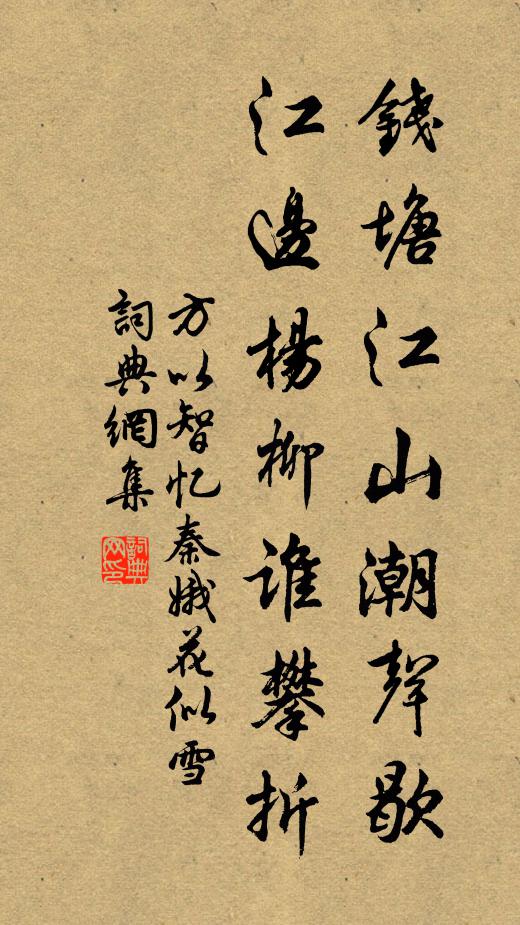 錢塘江山潮聲歇
江邊楊柳誰攀折
方以智忆秦娥花似雪
詞典網集
詞典网印